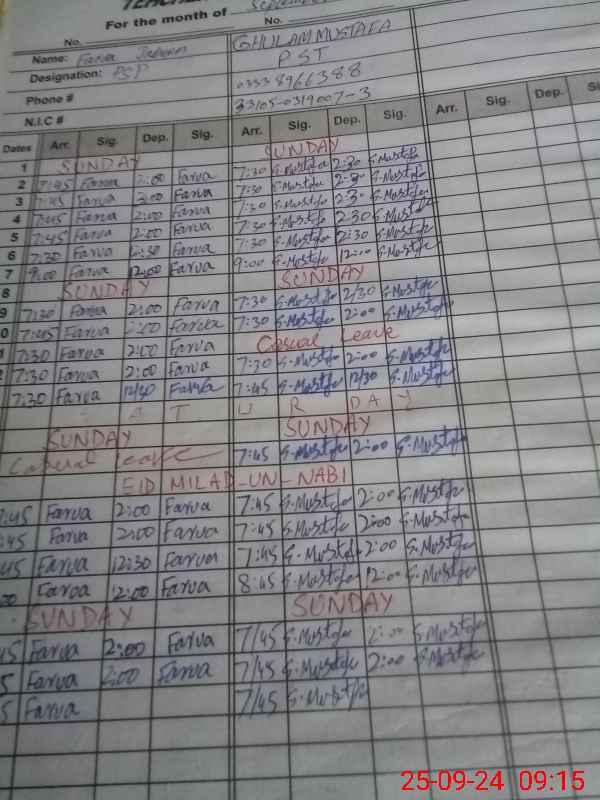 TEACHER
For the month of September
No. No.
Name: Farva GHULAM MUSTAFA
Designation: PSP PST
Phone # 0333 8966388
N.I.C # 33105-0319007-3
Dates Arr. Sig. Dep. Sig. Arr. Sig. Dep. Sig. Arr. Sig. Dep. Sig
1 SUNDAY SUNDAY
2 7:45 Farva 2:00 Farva 7:30 G.Mustafa 2:30 G.Mustafa
3 7:45 Farva 2:00 Farva 7:30 G.Mustafa 2:30 G.Mustafa
4 7:45 Farva 2:00 Farva 7:30 G.Mustafa 2:30 G.Mustafa
5 7:45 Farva 2:00 Farva 7:30 G.Mustafa 2:30 G.Mustafa
6 7:30 Farva Farva 7:30 G.Mustafa 2:30 G.Mustafa
7 9:00 Farva 12:00 Farva 9:00 G.Mustafa 12:00 G.Mustafa
8 SUNDAY SUNDAY
9 7:30 Farva 2:00 Farva 7:30 G.Mustafa 2/30 G.Mustafa
0 7:45 Farva 2:00 Farva 7:30 G.Mustafa 2:00 G.Mustafa
7:30 Farva 2:00 Farva Casual Leave
7:30 Farva 2:00 Farva 7:30 G.Mustafa 2:00 G.Mustafa
7:30 Farva 12/30 Farva 7:45 G.Mustafa 12/30 G.Mustafa
S A T U R D A Y
SUNDAY SUNDAY
Casual leave 7:45 G.Mustafa 2:00 G.Mustafa
EID MILAD-UN-NABI
7:45 Farva 2:00 Farva 7:45 G.Mustafa 2:00 G.Mustafa
:45 Farva 2:00 Farva 7:45 G.Mustafa 2:00 G.Mustafa
45 Farva 12:30 Farva 7:45 G.Mustafa 2:00 G.Mustafa
00 Farva 12:00 Farva 8:45 G.Mustafa 12:00 G.Mustafa
SUNDAY SUNDAY
45 Farva 2:00 Farva 7/45 G.Mustafa 2:00 G.Mustafa
5 Farva 2:00 Farva 7/45 G.Mustafa 2:00 G.Mustafa
5 Farva 7/45 G.Mustafa
25-09-24 09:15